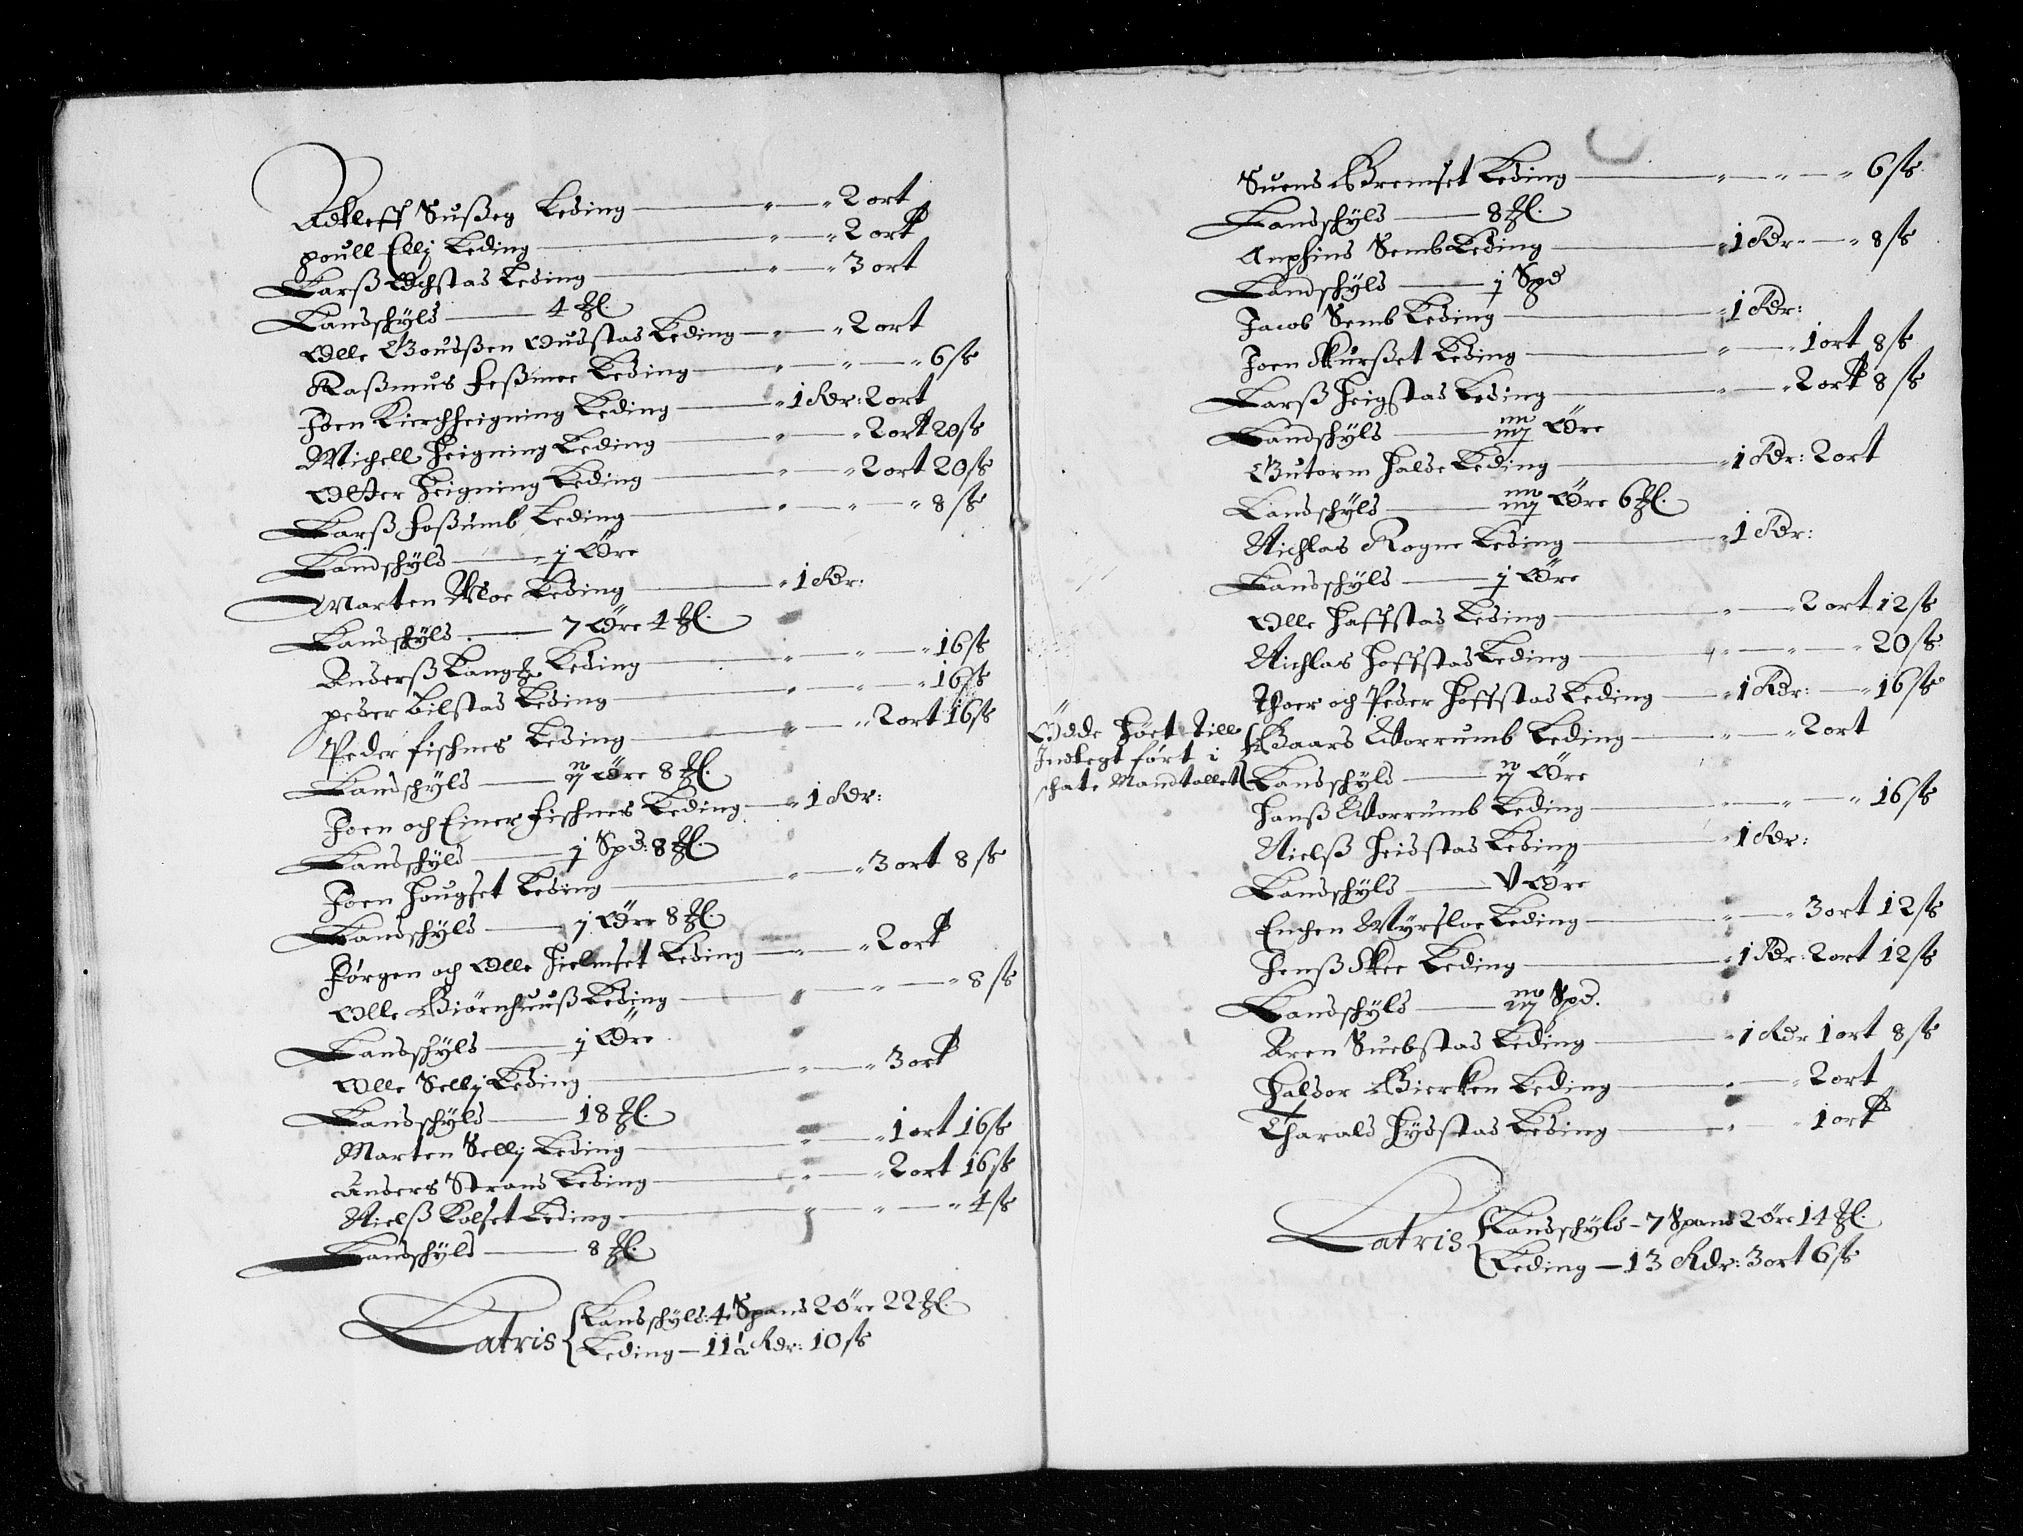 Adtleff Sußeg Leding — 2 ort
poull Ellj Leding — 2 ort
Larß Øchstad Leding — 3 ort
Landschyld — 4 ℔l.
Olle Goudßen Gudstad Leding — 2 ort
Raßmus Feßmoe Leding — 6 sk
Joen Kirchheigning Leding — 1 Rdr: 2 ort
Michell Heigning Leding — 2 ort 20 sk
Otter Heigning Leding — 2 ort 20 sk
Larß Foßumb Leding — 8 sk
Landschyld — j Øre
Marten Moe Leding — 1 Rdr:
Landschyld — 7 Øre 4 ℔l.
Anderß Lang Leding — 16 sk
peder bilstad Leding — 16 sk
Peder fischnes Leding — 2 ort 16 sk
Landschyld — ij Øre 8 ℔l.
Joen och Einer Fischnes Leding — 1 Rdr:
Landschyld — j Spd: 8 ℔l.
Joen Hougset Leding — 3 ort 8 sk
Landschyld — j Øre 8 ℔l.
Jørgen och Olle Hielmset Leding — 2 ort
Olle Biørnhuuß Leding — 8 sk
Landschyld — j Øre
Olle Sellj Leding — 3 ort
Landschyld — 18 ℔l.
Marten Sellj Leding — 1 ort 16 sk
Anders Strand Leding — 2 ort 16 sk
Nielß Kolset Leding — 4 sk
Landschyld — 8 ℔l.
Latris { Landschyld: 4 Spand 2 Øre 22 ℔l.
Leding — 11½ Rdr: 10 sk
Suend Gremset Leding — 6 sk
Landschyld — 8 ℔l.
Anphind Semb Leding — 1 Rdr — 8 sk
Landschyld — j Spd
Jacob Semb Leding — 1 Rdr:
Joen Skurßet Leding — 1 ort 8 sk
Larß Heigstad Leding — 2 ort 8 sk
Landschyld — iiij Øre
Gutorm Halde Leding — 1 Rdr: 2 ort
Landschyld — iiij Øre 6 ℔l.
Nichlas Rogne Leding — 1 Rdr:
Landschyld — j Øre
Olle Haffstad Leding — 2 ort 12 sk
Nichlas Hoffstad Leding — 20 sk
Thoer och Peder Hoffstad Leding — 1 Rdr: — 16 sk
Ødde Høet till { Baard Worrumb Leding — 2 ort
Indtegt ført i
schate Mandtallet { Landschyld — ij Øre
Hanß Worrumb Leding — 16 sk
Nielß Heidstad Leding — 1 Rdr:
Landschyld — V Øre
Enchen Myrsloe Leding — 3 ort 12 sk
Jenß Skee Leding — 1 Rdr: 2 ort 12 sk
Landschyld — iij Spd.
Aren Suebstad Leding — 1 Rdr 1 ort 8 sk
Haldor Bierken Leding — 2 ort
Tharald Hydstad Leding — 1 ort
Latris { Landschyld — 7 Spand 2 Øre 14 ℔l.
Leding — 13 Rdr: 3 ort 6 sk